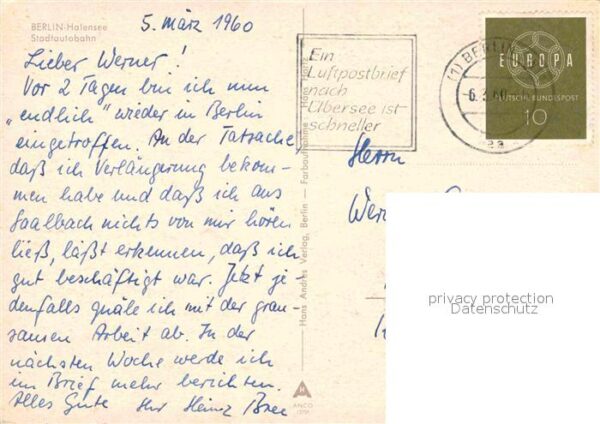 BERLIN-Halensee
Stadtautobahn
5. März 1960
Lieber Werner!
Vor 2 Tagen bin ich nun
„endlich" wieder in Berlin
eingetroffen. An der Tatsache,
daß ich Verlängerung bekom-
men habe und daß ich aus
Saalbach nichts von mir hören
ließ, läßt erkennen, daß ich
gut beschäftigt war. Jetzt je
denfalls quäle ich mit der grau-
samen Arbeit ab. In der
nächsten Woche werde ich
im Brief mehr berichten.
Alles Gute Ihr Heinz
Hans Andres Verlag, Berlin — Farbaufnahme Hans Hartz
ANCO
Ein
Luftpostbrief
nach
Übersee ist
schneller
(1) BERLIN
6.3.60
EUROPA
DEUTSCHE BUNDESPOST
10
Herrn
privacy protection
Datenschutz